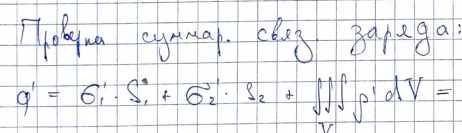 Проверка суммар. связ. заряда:
q' = σ₁' · S₁ + σ₂' · S₂ + ∭ᵥ ρ' dV =